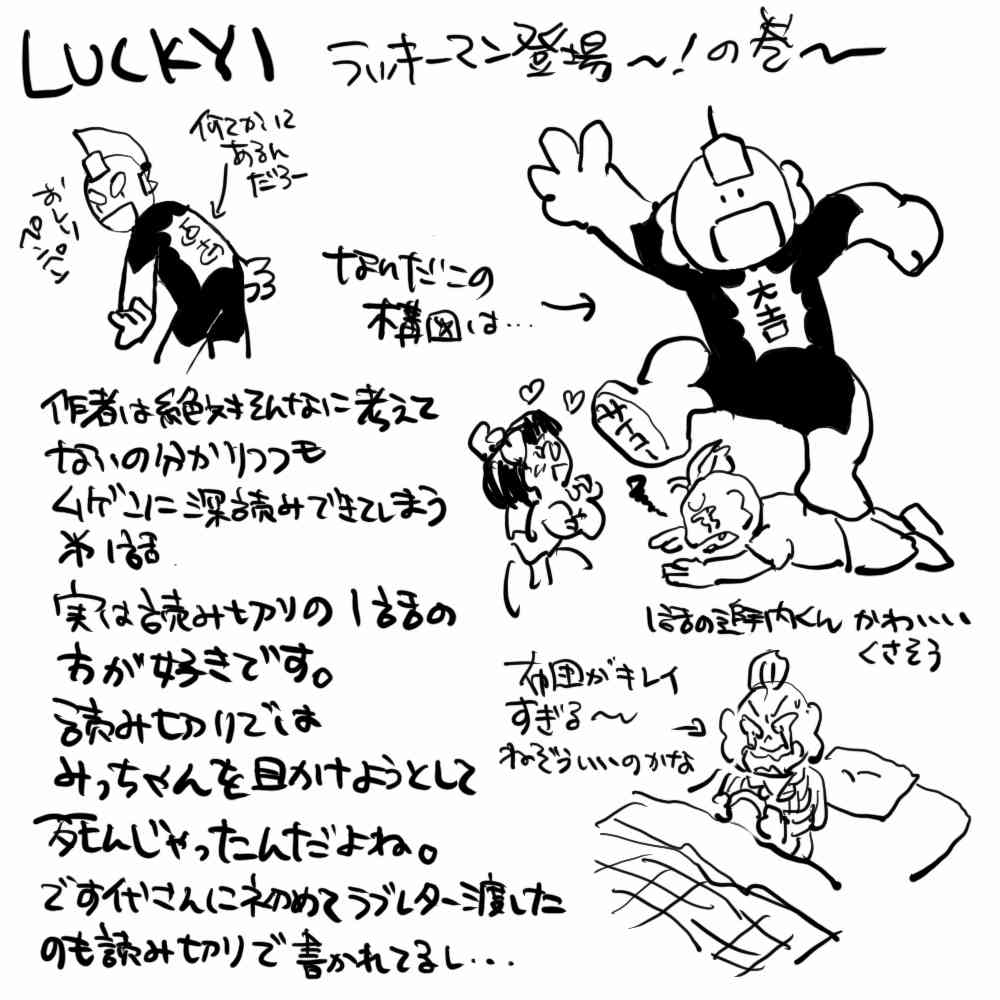 LUCKY1 ラッキーマン登場〜!の巻〜
何でかくに
あるん
だろー
おしり
ペンペン
なんだこの
構図は...
大吉
サトコー
作者は絶対そんなに考えて
ないの分かりつつも
ムゲンに深読みできてしまう
第1話
実は読み切りの1話の
方が好きです。
読み切りでは
みっちゃんを目かけようとして
死んじゃったんだよね。
です代さんに初めてラブレター渡した
のも読み切りで書かれてるし...
1話の追手内くん かわいい
くさそう
布団がキレイ
すぎる〜
ねぞういいのかな